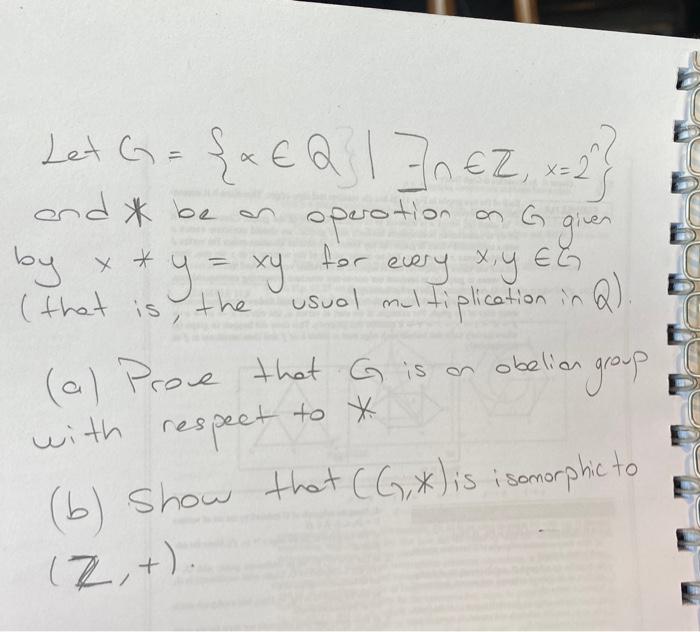 Let G = {x ∈ Q | ∃n ∈ Z, x=2^n}
and * be an operation on G given
by x * y = xy for every x,y ∈ G
(that is, the usual multiplication in Q).
(a) Prove that G is an abelian group
with respect to *.
(b) Show that (G,*) is isomorphic to
(Z,+).